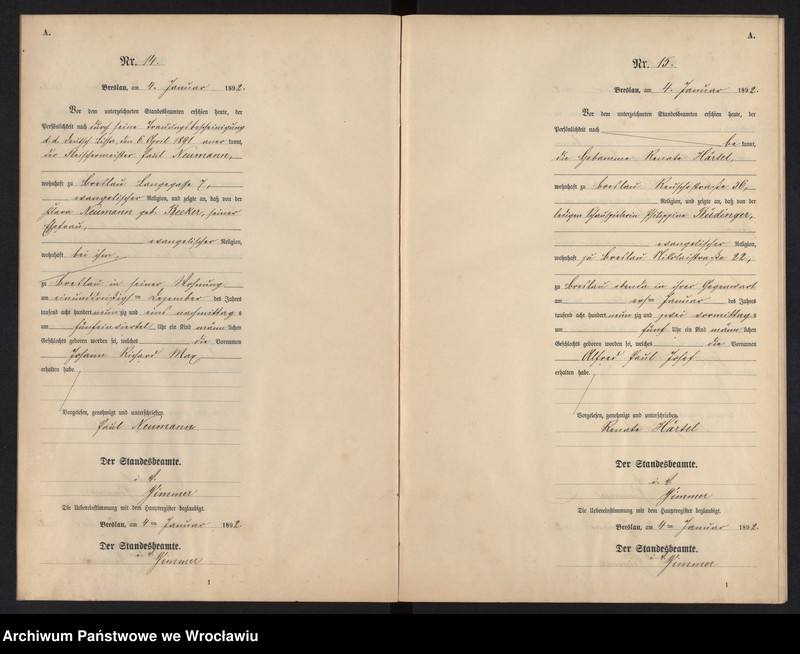 A.
Nr. 14.
Breslau, am 4. Januar 1892.
Vor dem unterzeichneten Standesbeamten erschien heute, der
Persönlichkeit nach durch seine Trauungsbescheinigung
d. d. Deutsch Lissa, den 6. April 1891 aner kannt,
der Fleischermeister Paul Neumann,
wohnhaft zu Breslau Langegasse 7,
evangelischer Religion, und zeigte an, daß von der
Klara Neumann geb. Becker, seiner
Ehefrau,
evangelischer Religion,
wohnhaft bei ihm,
zu Breslau in seiner Wohnung
am einunddreißigsten Dezember des Jahres
tausend acht hundert neunzig und eins nachmittags
um fünfeinviertel Uhr ein Kind männlichen
Geschlechts geboren worden sei, welches die Vornamen
Johann Richard Max
erhalten habe.
Vorgelesen, genehmigt und unterschrieben
Paul Neumann
Der Standesbeamte.
Zimmer
Die Uebereinstimmung mit dem Hauptregister beglaubigt.
Breslau, am 4ten Januar 1892.
Der Standesbeamte.
Zimmer
1
A.
Nr. 15.
Breslau, am 4. Januar 1892.
Vor dem unterzeichneten Standesbeamten erschien heute, der
Persönlichkeit nach
be kannt,
die Hebamme Renate Härtel,
wohnhaft zu Breslau Reuschestraße 36,
Religion, und zeigte an, daß von der
ledigen Schauspielerin Philippine Büdinger,
evangelischer Religion,
wohnhaft zu Breslau Nikolaistraße 22,
zu Breslau ebenda in ihrer Gegenwart
am ersten Januar des Jahres
tausend acht hundert neunzig und zwei vormittags
um fünf Uhr ein Kind männlichen
Geschlechts geboren worden sei, welches die Vornamen
Alfred Paul Josef
erhalten habe.
Vorgelesen, genehmigt und unterschrieben
Renate Härtel
Der Standesbeamte.
Zimmer
Die Uebereinstimmung mit dem Hauptregister beglaubigt.
Breslau, am 4ten Januar 1892.
Der Standesbeamte.
Zimmer
1
Archiwum Państwowe we Wrocławiu